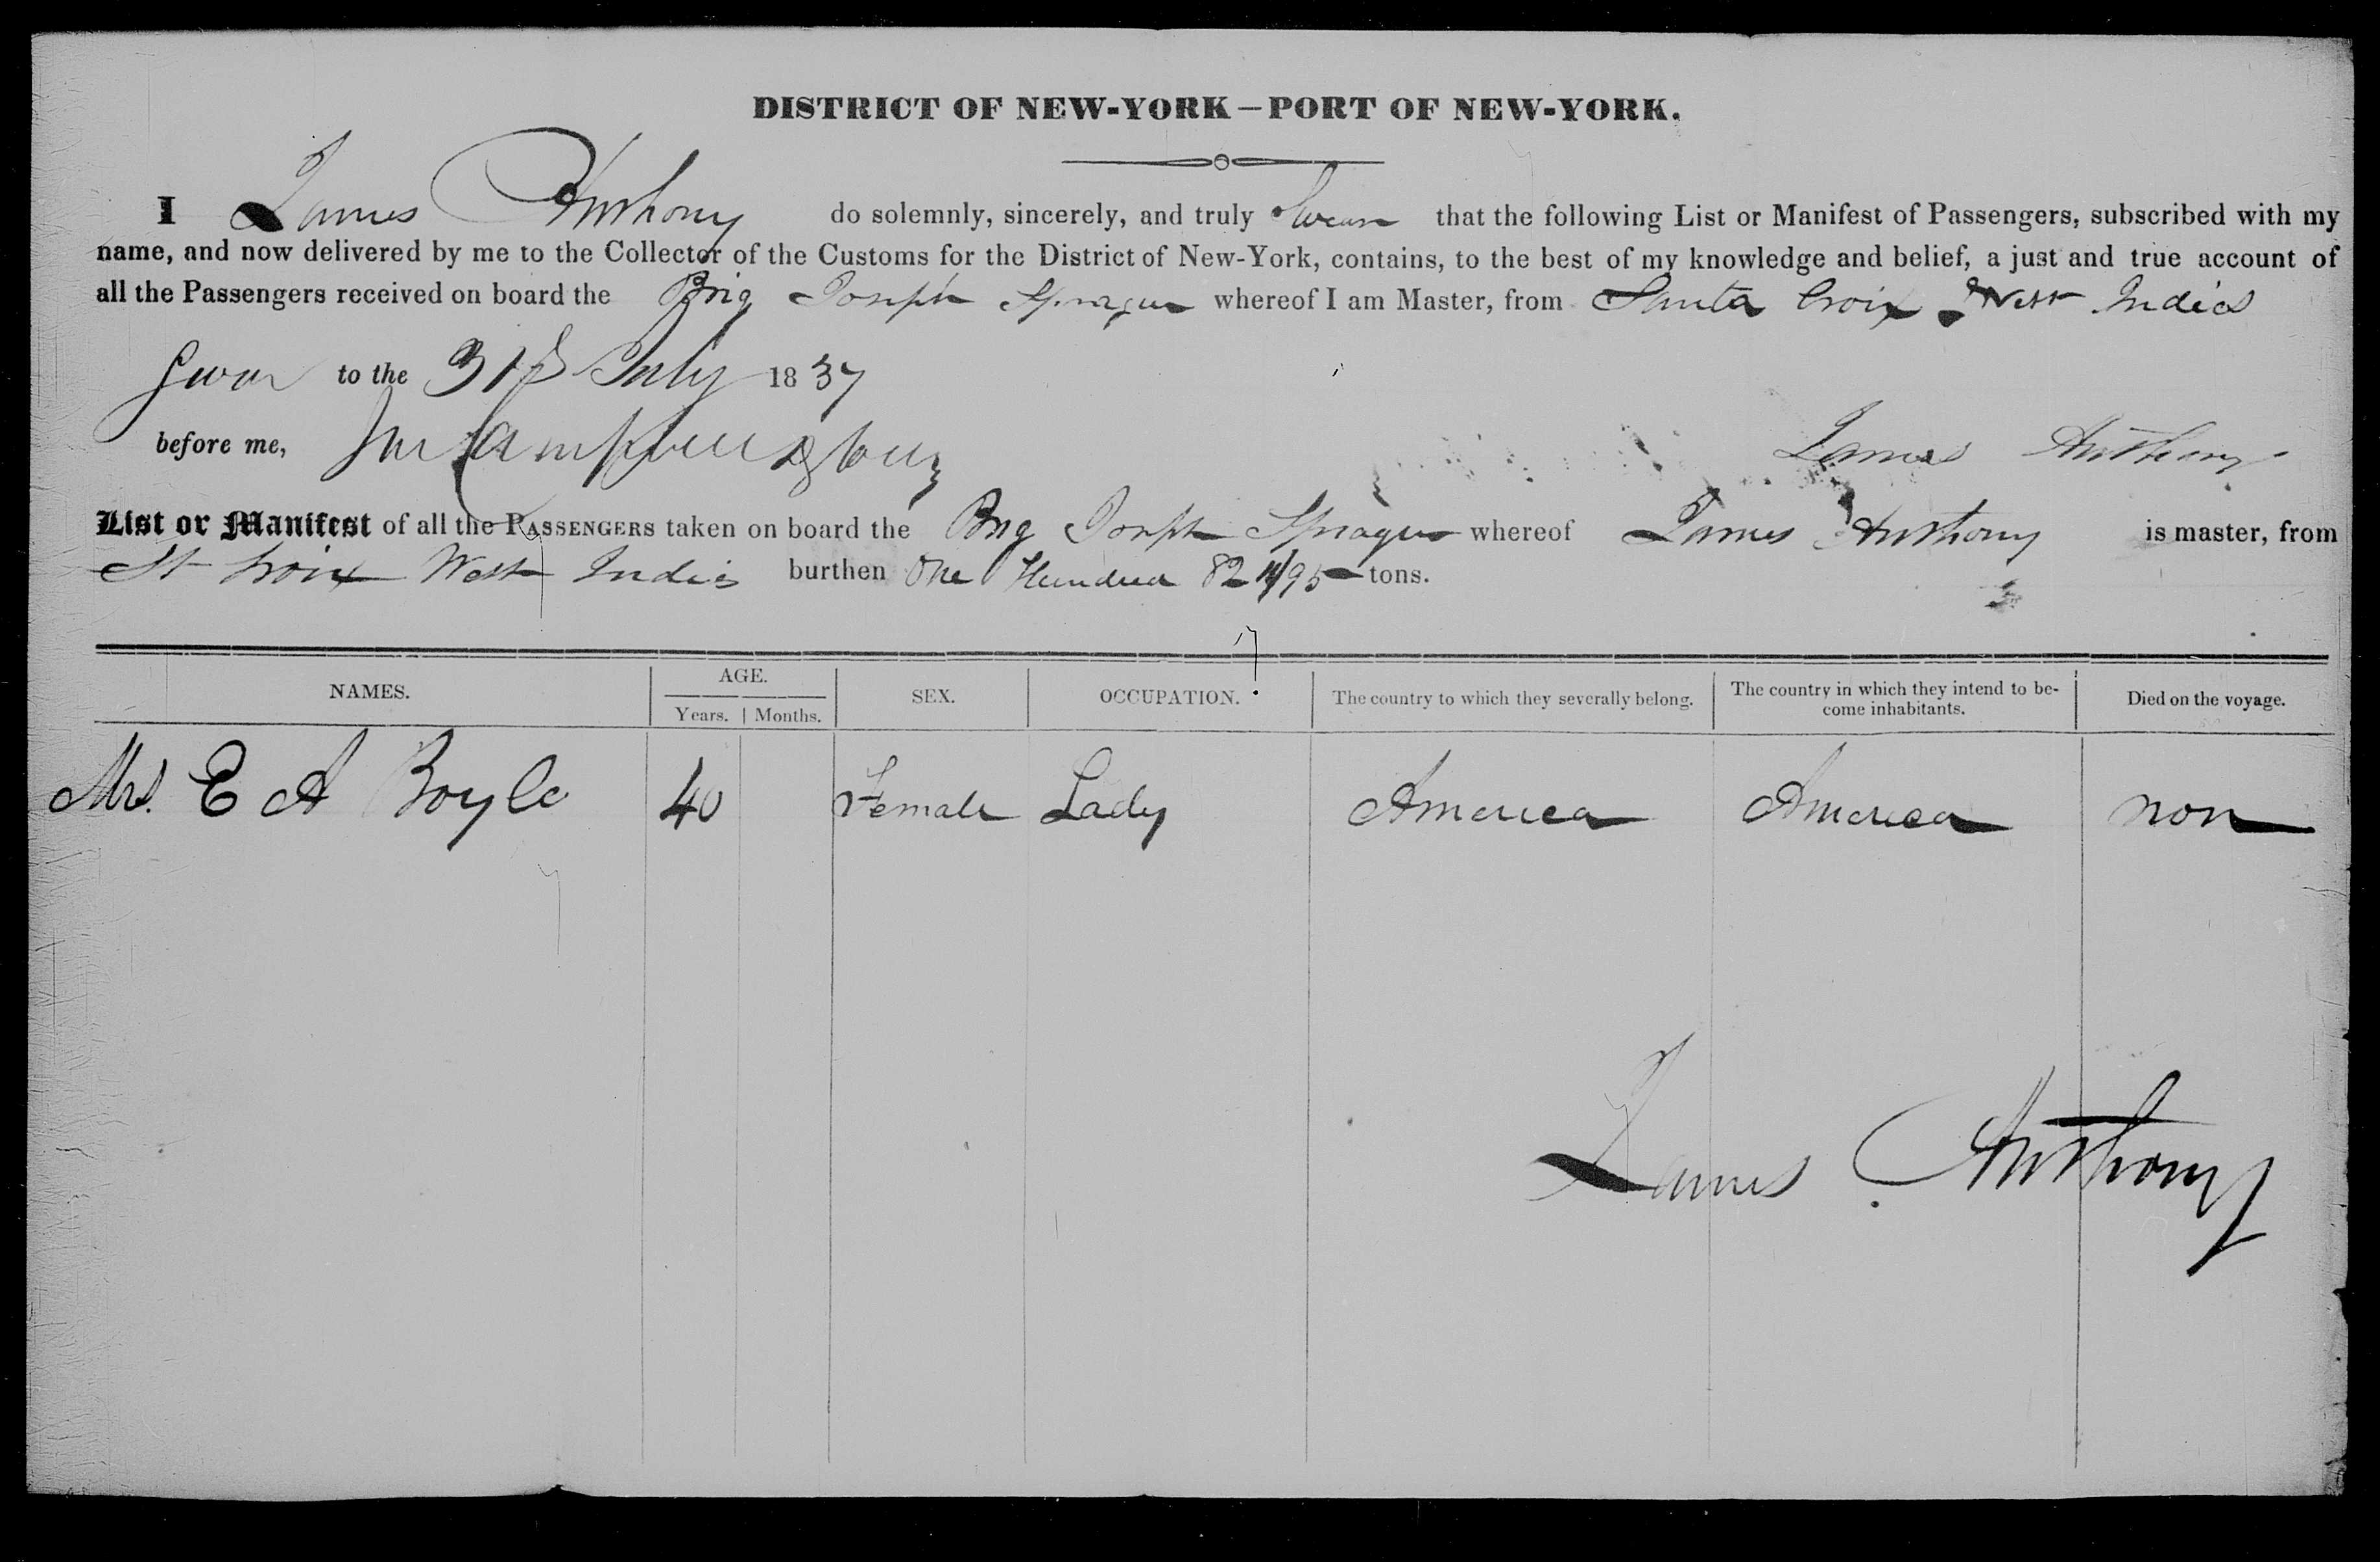 DISTRICT OF NEW-YORK—PORT OF NEW-YORK.
I James Anthony do solemnly, sincerely, and truly Swear that the following List or Manifest of Passengers, subscribed with my
name, and now delivered by me to the Collector of the Customs for the District of New-York, contains, to the best of my knowledge and belief, a just and true account of
all the Passengers received on board the Brig Joseph Sprague whereof I am Master, from Santa Croix West Indies
Swor to the 31st July 1837
before me,
James Anthony
List or Manifest of all the PASSENGERS taken on board the Brig Joseph Sprague whereof James Anthony is master, from
St Croix West Indies burthen One Hundred 82 /95 tons.
NAMES. AGE. SEX. OCCUPATION. The country to which they severally belong. The country in which they intend to be-
come inhabitants. Died on the voyage.
Years. Months.
Mrs. E A Boyle 40 Female Lady America America non
James Anthony